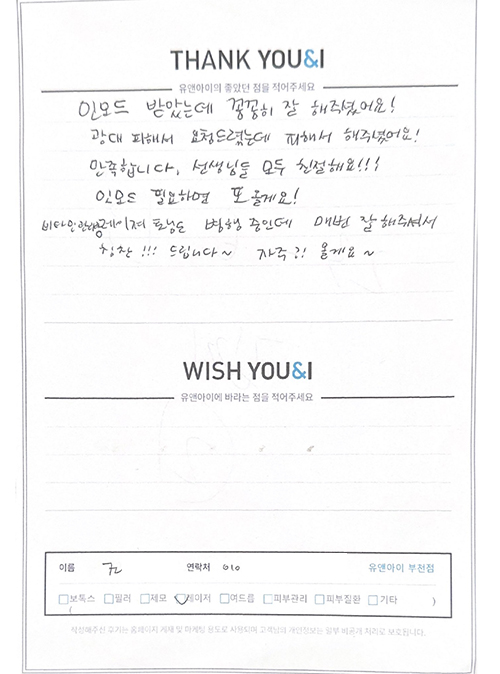 THANK YOU&I
유앤아이의 좋았던 점을 적어주세요
인모드 받았는데 꼼꼼히 잘 해주셨어요!
광대 피해서 요청드렸는데 피해서 해주셨어요!
만족합니다. 선생님들 모두 친절해요!!!
인모드 필요하면 또 올게요!
비타민관리 레이저 토닝도 병행 중인데 매번 잘 해주셔서
칭찬 !!! 드립니다~ 자주 ?! 올게요~
WISH YOU&I
유앤아이에 바라는 점을 적어주세요
이름 연락처 010 유앤아이 부천점
보톡스 필러 제모 레이저 여드름 피부관리 피부질환 기타
( )
작성해주신 후기는 홈페이지 게재 및 마케팅 용도로 사용되며 고객님의 개인정보는 일부 비공개 처리로 보호됩니다.